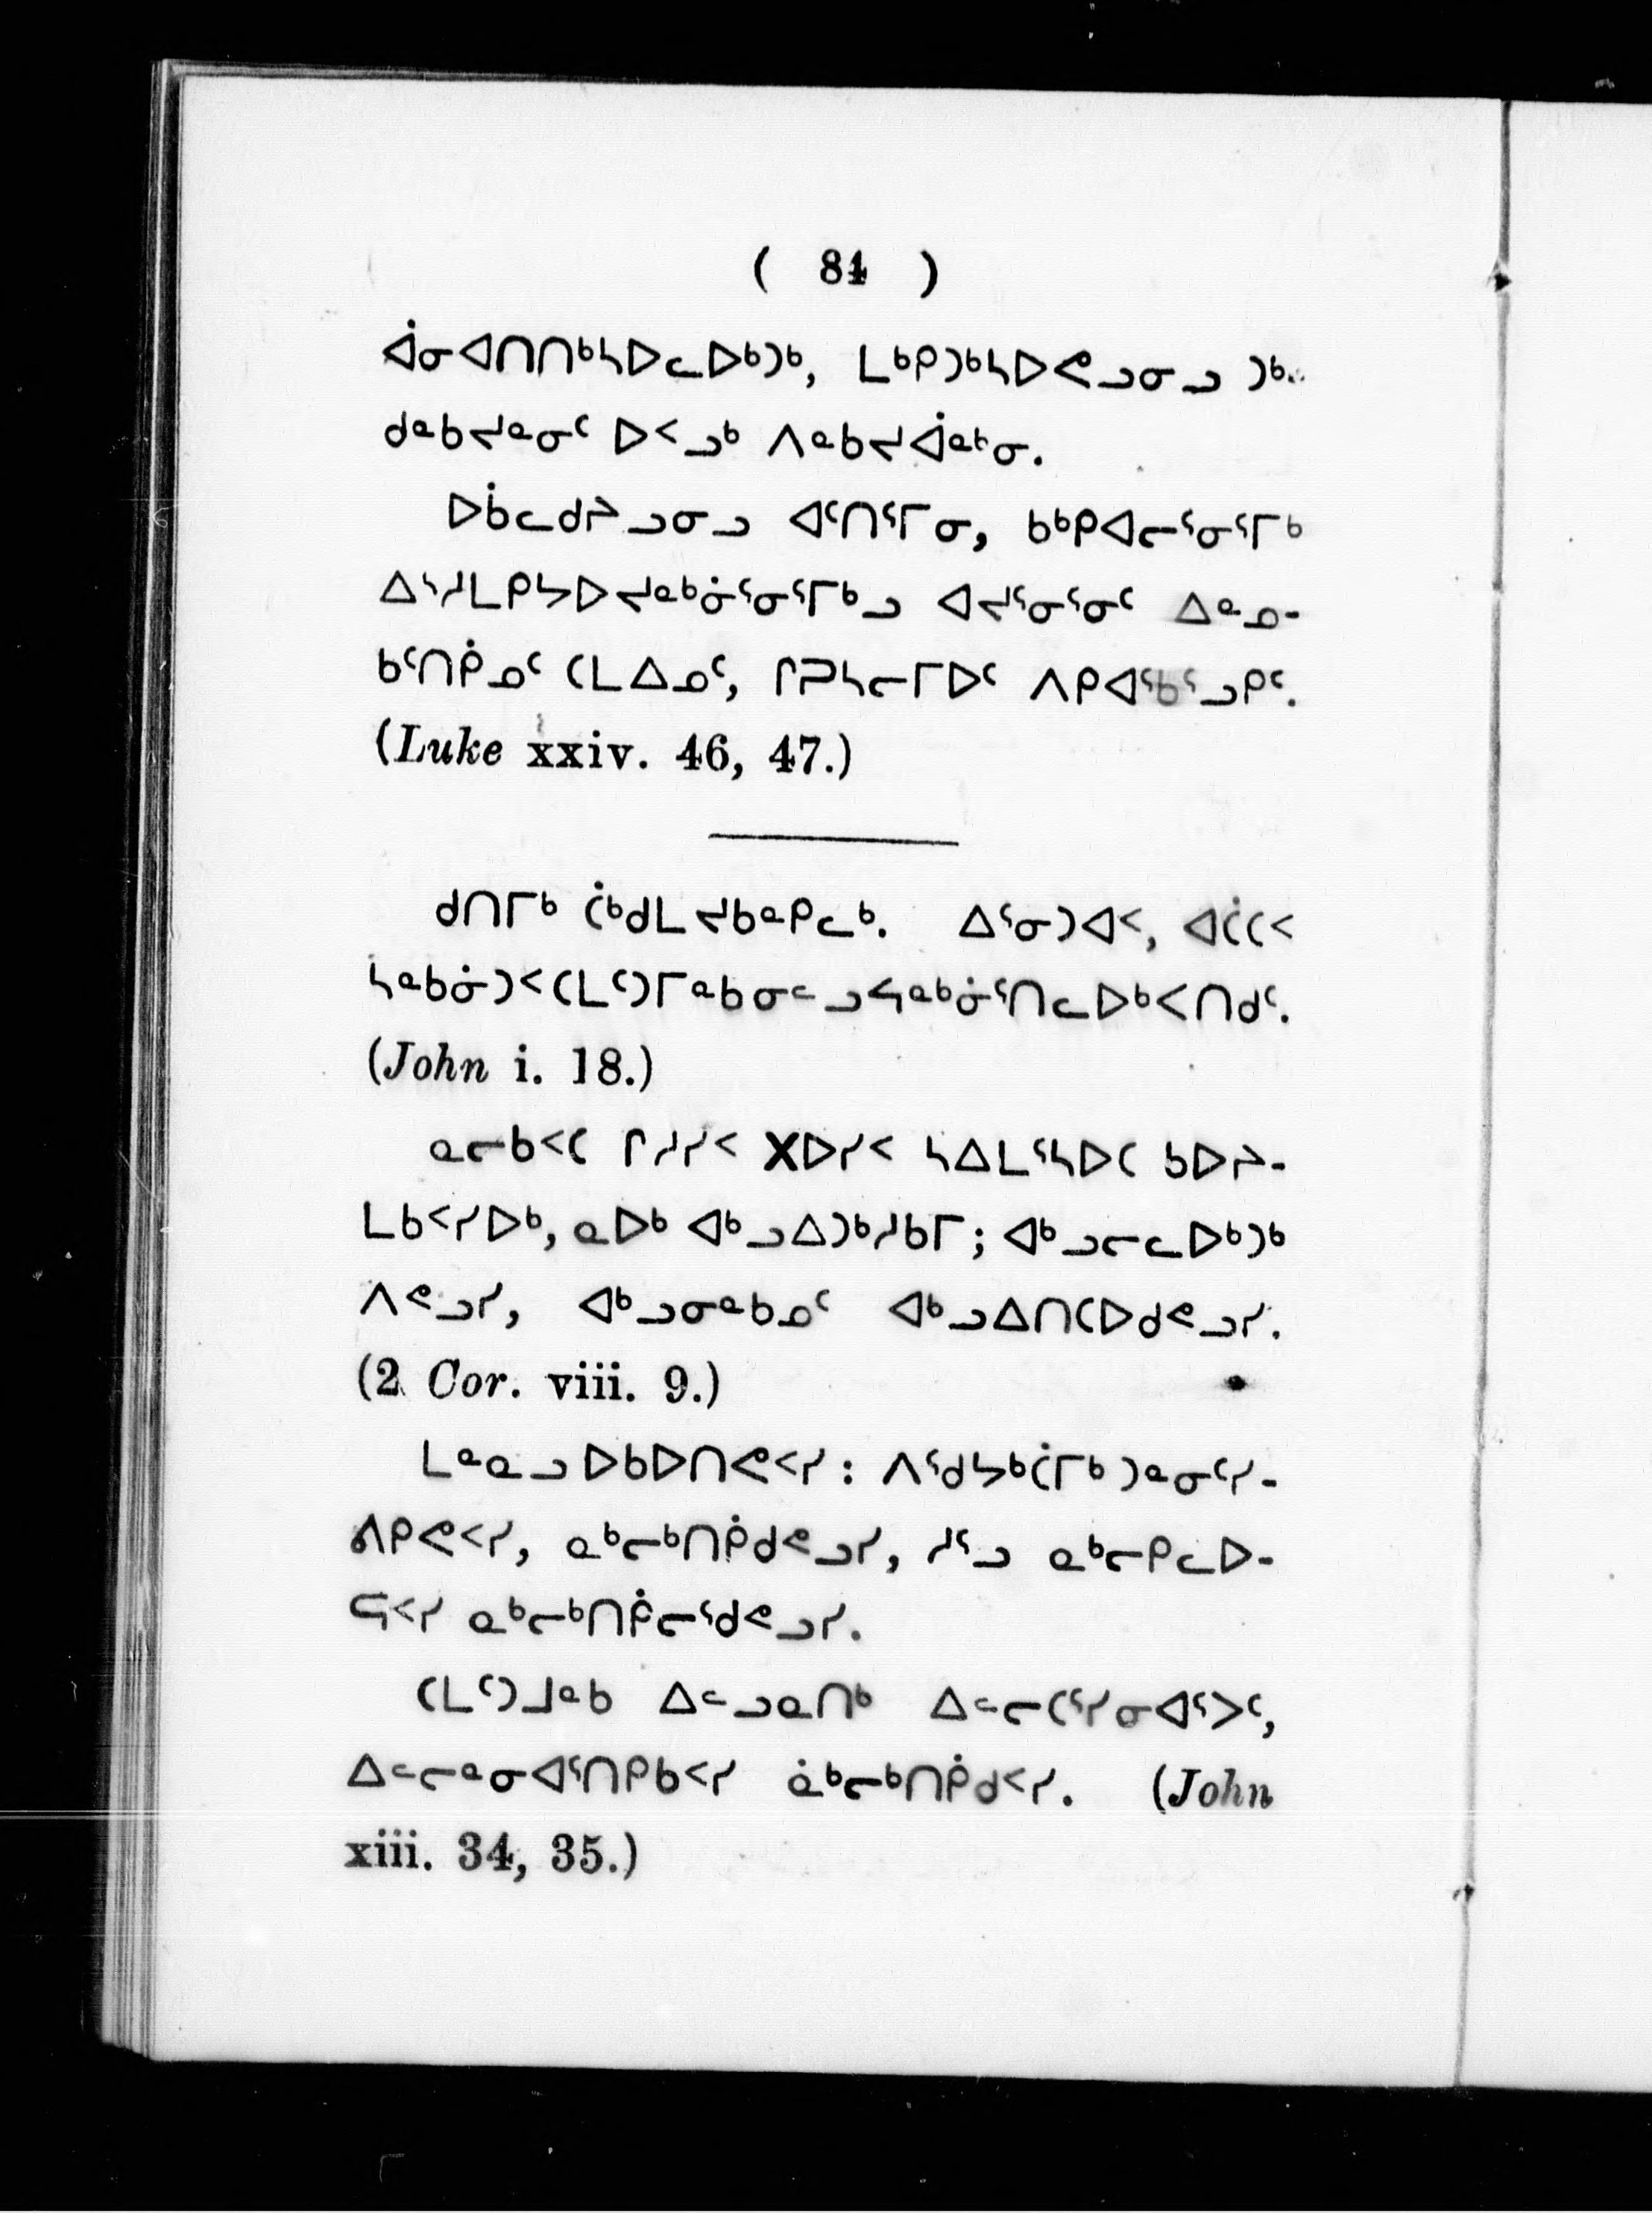 ( 84 )
ᐋᓂᐊᑎᑎᒃᓴᐅᓚᐅᒃᑐᒃ, ᒪᒃᑭᑐᒃᓴᐅᕙᓗᓂᓗ ᑐᒃ.
ᑯᓐᑲᔪᓐᓂᑦ ᐅᑉᓗᒃ ᐱᓐᑲᔪᐋᓐᒃᓂ.
ᐅᑳᓚᑯᔨᓗᓂᓗ ᐊᑦᑎᕐᒥᓂ, ᑲᒃᑭᐊᓕᕐᓂᕐᒥᒃ
ᐃᓴᒪᑭᔭᐅᔪᓐᒃᓃᕐᓂᕐᒥᒃᓗ ᐊᔪᕐᓂᕐᓂᑦ ᐃᓐᓄ-
ᑲᑦᑎᑮᓄᑦ ᑕᒪᐃᓄᑦ, ᒋᑐᓴᓕᒥᐅᑦ ᐱᑭᐊᖅᑲᕐᓗᑭᑦ.
(Luke xxiv. 46, 47.)
ᑯᑎᒥᒃ ᑖᒃᑯᒪᔪᑲᓐᑭᓚᒃ. ᐃᕐᓂᑐᐊᑉ, ᐊᑖᑕᑉ
ᓴᓐᑲᓃᑐᑉ ᑕᒪᑦᑐᒥᓐᑲᓂᓪᓗᓴᓐᒃᓃᕐᑎᓚᐅᒃᐸᑎᑯᑦ.
(John i. 18.)
ᓇᓕᑲᑉᑕ ᒋᓱᓯᑉ Xᐅᓯᑉ ᓴᐃᒪᕐᓴᐅᑕ ᑲᐅᔨ-
ᒪᑲᑉᓯᐅᒃ, ᓇᐅᒃ ᐊᒃᓗᐃᑐᒃᓱᑲᒥ; ᐊᒃᓗᓕᓚᐅᒃᑐᒃ
ᐱᕝᓗᓯ, ᐊᒃᓗᓂᓐᑲᓄᑦ ᐊᒃᓗᐃᑎᑕᐅᑯᕝᓗᓯ.
(2 Cor. viii. 9.)
ᒪᓐᓇᓗ ᐅᑲᐅᑎᕙᑉᓯ: ᐱᕐᑯᔭᒃᑖᒥᒃ ᑐᓐᓂᑦᓯ-
ᕕᑭᕙᑉᓯ, ᓇᒃᓕᒃᑎᑮᑯᕝᓗᓯ, ᓱᕐᓗ ᓇᒃᓕᑭᓚᐅ-
ᕋᑉᓯ ᓇᒃᓕᒃᑎᑮᓕᕐᑯᕝᓗᓯ.
ᑕᒪᑦᑐᒧᓐᑲ ᐃᓪᓗᓇᑎᒃ ᐃᓪᓕᑕᕐᓯᓂᐊᕐᐳᑦ,
ᐃᓪᓕᓐᓂᐊᕐᑎᑭᑲᑉᓯ ᓈᒃᓕᒃᑎᑮᑯᑉᓯ. (John
xiii. 34, 35.)